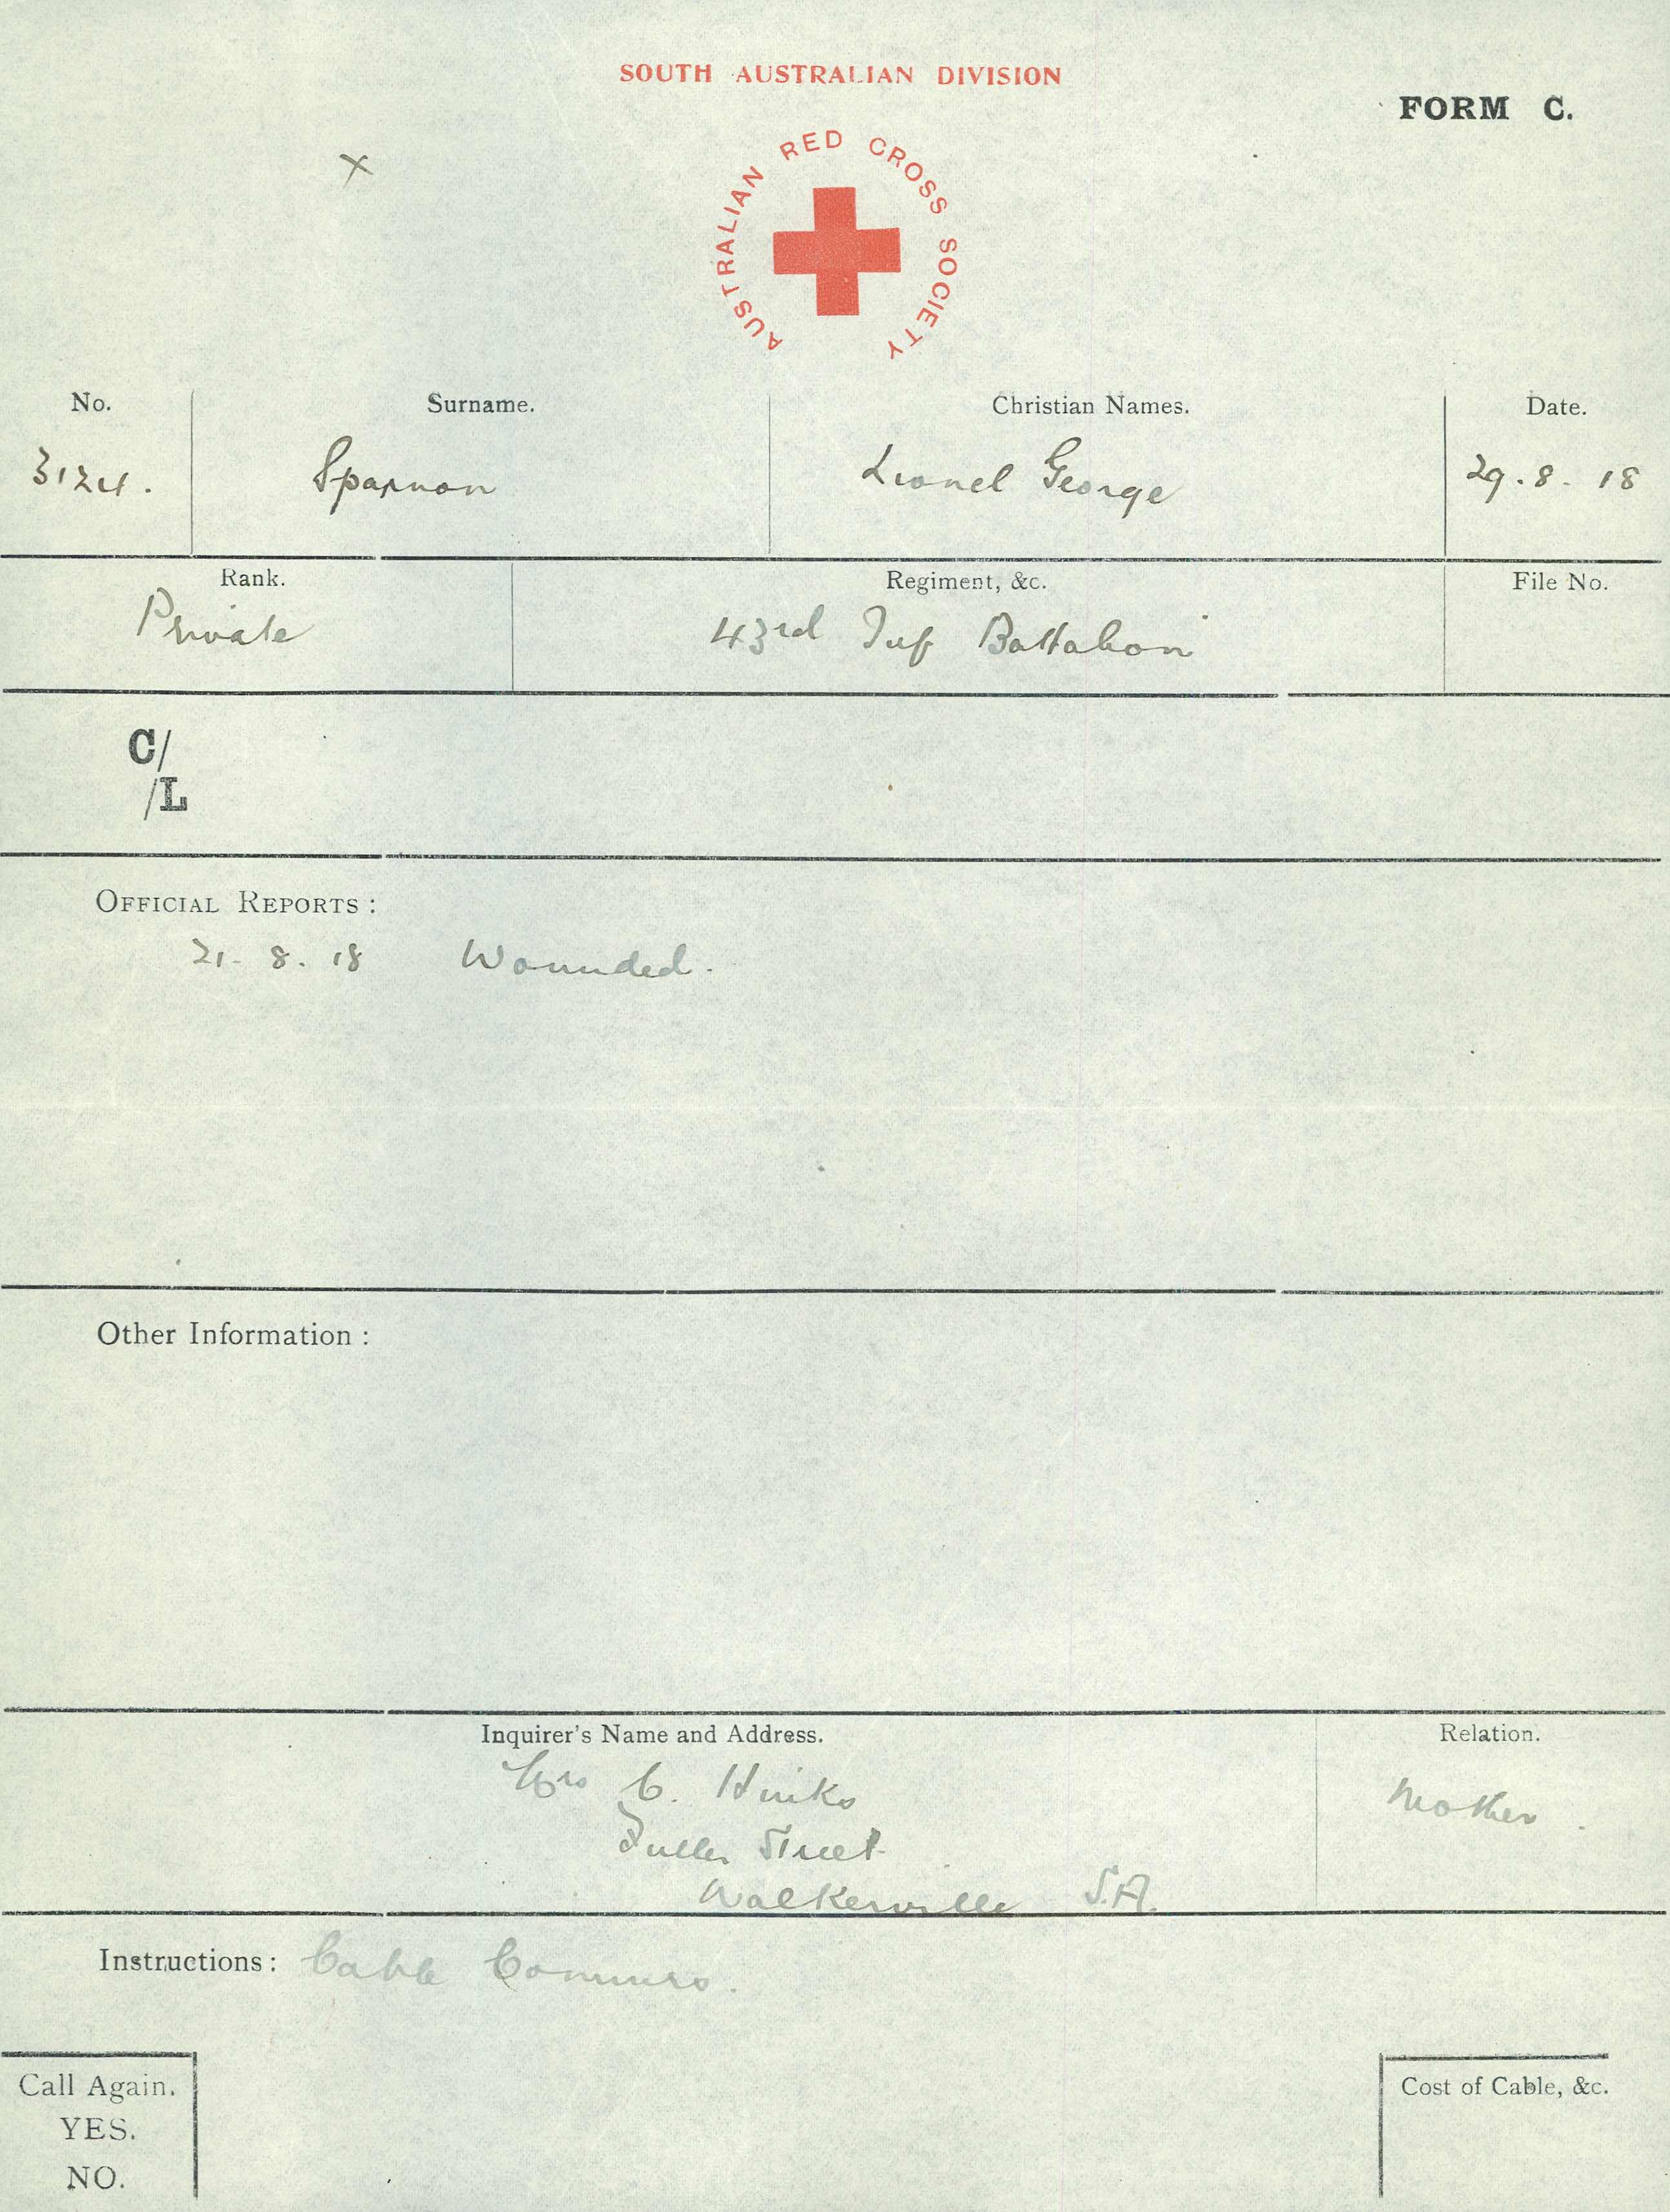 SOUTH AUSTRALIAN DIVISION
FORM C.
X
AUSTRALIAN RED CROSS SOCIETY
No. Surname. Christian Names. Date.
3124. Sparnon Lionel George 29.8.18
Rank. Regiment, &c. File No.
Private 43rd Inf Battalion
C/
/L
OFFICIAL REPORTS:
21.8.18 Wounded.
Other Information:
Inquirer's Name and Address. Relation.
Mrs C. Hinks Mother.
Fuller Street
Walkerville S.A.
Instructions: Cable Commrs.
Call Again. Cost of Cable, &c.
YES.
NO.